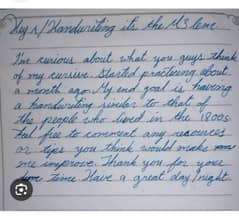 Hey r/Handwriting its the U3 leme
I'm curious about what you guys think
of my cursive. Started practicing about
a month ago. My end goal is having
a handwriting similar to that of
the people who lived in the 1800s
Feel free to comment any resources
or tips you think would make
me improve. Thank you for your
time Have a great day/night